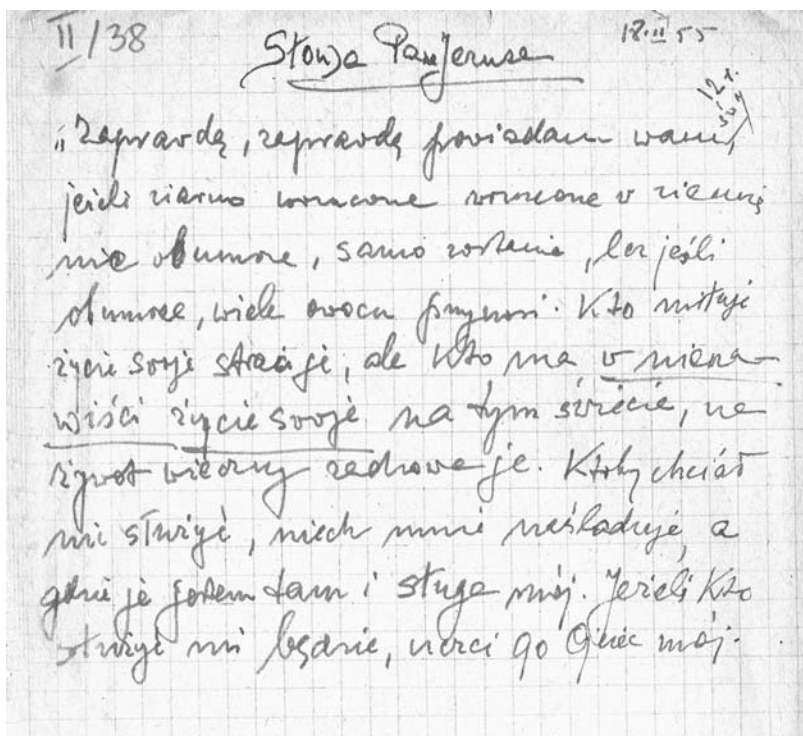 II/38
Słowa Pan Jezusa
18.II 55
12 r.
"Zaprawdę, zaprawdę powiadam wam,
jeżeli ziarno wrzucone wrzucone w ziemię
nie obumrze, samo zostanie, lecz jeśli
obumrze, wiele owocu przynosi. Kto miłuje
życie swoje straci je, ale kto ma w niena-
wiści życie swoje na tym świecie, na
żywot wieczny zachowa je. Ktoby chciał
mi służyć, niech mnie naśladuje, a
gdzie ja jestem tam i sługa mój. Jeżeli kto
służyć mi będzie, uczci go Ojciec mój.